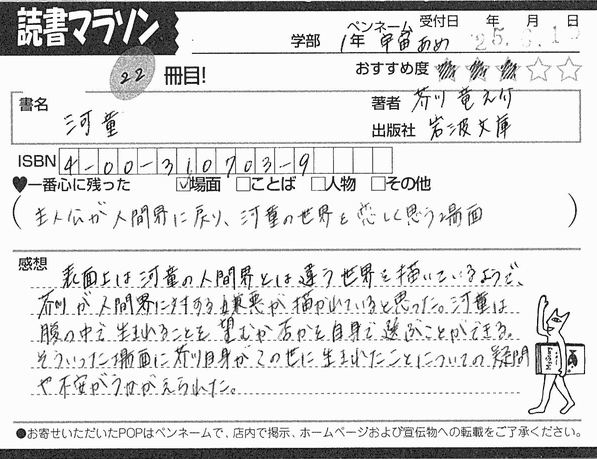 読書マラソン
学部 1年 ペンネーム 甲宙あめ 受付日 年 月 日
22 冊目! おすすめ度 ★★★☆☆
書名 河童
著者 芥川竜之介
出版社 岩波文庫
ISBN 4-00-310703-9
♥一番心に残った ☑場面 □ことば □人物 □その他
(主人公が人間界に戻り、河童の世界を恋しく思う場面)
感想
表面上は河童の人間界とは違う世界を描いているようで、
芥川が人間界に対する嫌悪が描かれていると思った。河童は
腹の中で生まれることを望むか否かを自身で選ぶことができる。
そういった場面に芥川自身がこの世に生まれたことについての疑問
や不安がうかがえられた。
●お寄せいただいたPOPはペンネームで、店内で掲示、ホームページおよび宣伝物への転載をご了承ください。